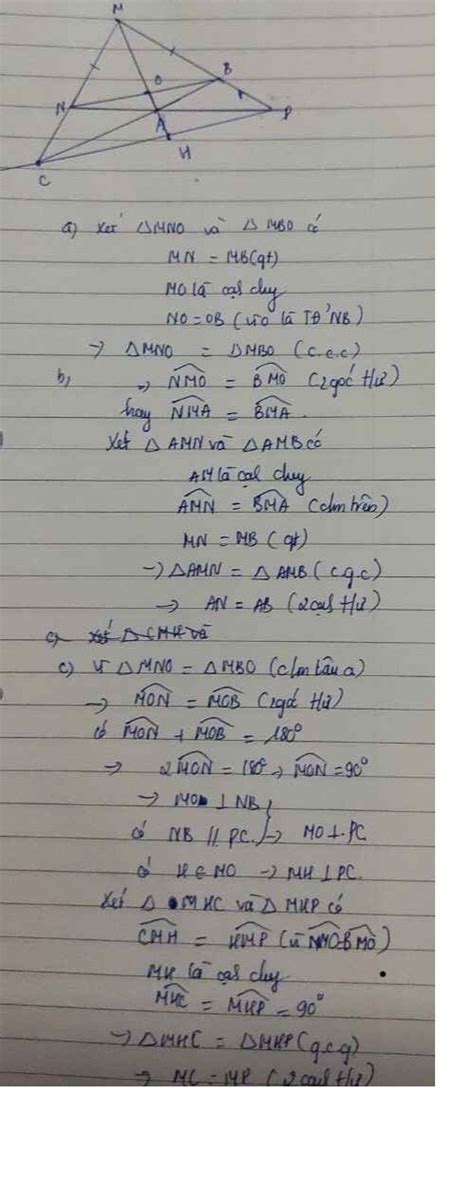 M
B
O
N
P
A
H
C
a) Xét ΔMNO và ΔMBO có
MN = MB (gt)
MO là cạh chug
NO = OB (vì O là TĐ' NB)
→ ΔMNO = ΔMBO (c.c.c)
b, → NMO = BMO (2 góc Hư)
hay NMA = BMA.
Xét ΔAMN và ΔAMB có
AM là cạh chug
AMN = BMA (clm trên)
MN = MB (gt)
→ ΔAMN = ΔAMB (c.g.c)
→ AN = AB (2 cạh Hư)
c, Xét ΔCMH và
c) Vì ΔMNO = ΔMBO (clm câu a)
→ MON = MOB (2 góc Hư)
có MON + MOB = 180°
→ 2MON = 180° → MON = 90°
→ MO ⊥ NB
có NB // PC. } → MO ⊥ PC
có H ∈ MO → MH ⊥ PC.
Xét Δ MHC và Δ MHP có
CMH = HMP (vì NMO = BMO)
MH là cạh chug
MHC = MHP = 90°
→ ΔMHC = ΔMHP (g.c.g)
→ MC = MP (2 cạh Hư)